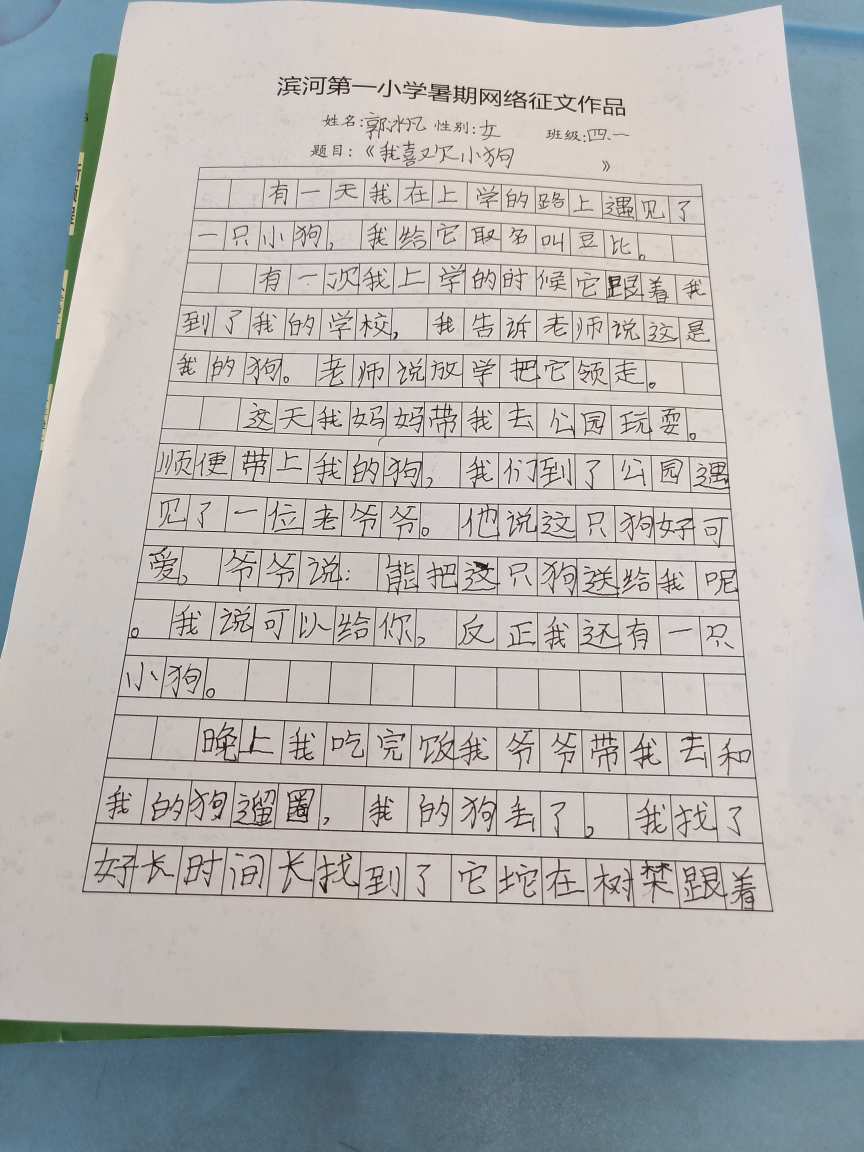 滨河第一小学暑期网络征文作品
姓名:郭冰凡 性别:女 班级:四.一
题目:《我喜欢小狗》
有一天我在上学的路上遇见了
一只小狗,我给它取名叫豆比。
有一次我上学的时候它跟着我
到了我的学校,我告诉老师说这是
我的狗。老师说放学把它领走。
这天我妈妈带我去公园玩耍。
顺便带上我的狗,我们到了公园遇
见了一位老爷爷。他说这只狗好可
爱,爷爷说:能把这只狗送给我呢
。我说可以给你,反正我还有一只
小狗。
晚上我吃完饭我爷爷带我去和
我的狗遛圈,我的狗丢了,我找了
好长时间长找到了它坨在树禁跟着